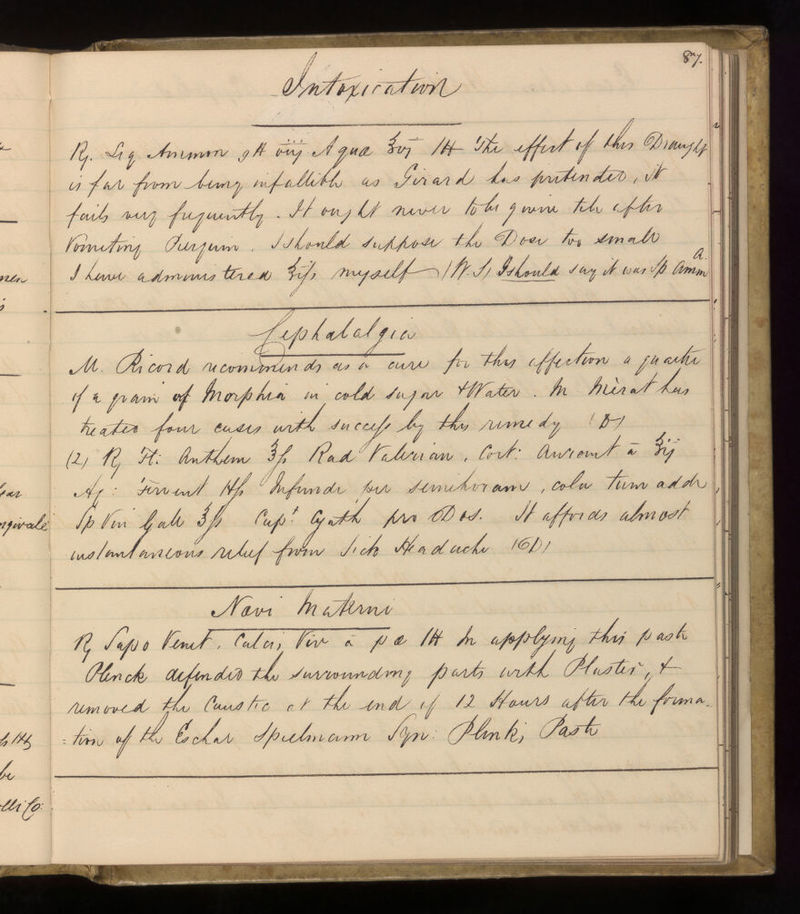 87.
Intoxication
℞. Liq Ammon gtt viij Aqua ℥vj M The effect of this Draught
is far from being infallible as Girard has pretended, it
fails very frequently. It ought never to be given till after
Vomiting Pergum. I should suppose the Dose too small
I have administered ʒifs myself (W.S) I should say it was Sp Amm A.
Cephalalgia
M. Ricord recommends as a cure for this affection a quarter
of a grain of Morphia in cold sugar & Water. M Mèrat has
treated four cases with success by this remedy (D)
(2) ℞ Fl: Anthem ℥fs Rad Valerian, Cort: Aurant a ʒij
Aq: Fervent lbfs Infunde per semihoram, cola tum adde
Sp Vin Gall ℥fs Capt Cyath pro Dos. It affords almost
instantaneous relief from Sick Headache (GD)
Nævi Materni
℞ Sapo Venet. Calcis Viv a p æ M In applying this paste
Plenck defended the surrounding parts with Plaster, &
removed the Caustic at the end of 12 Hours after the forma-
=tion of the Eschar Spielmann Syn: Plenk's Paste